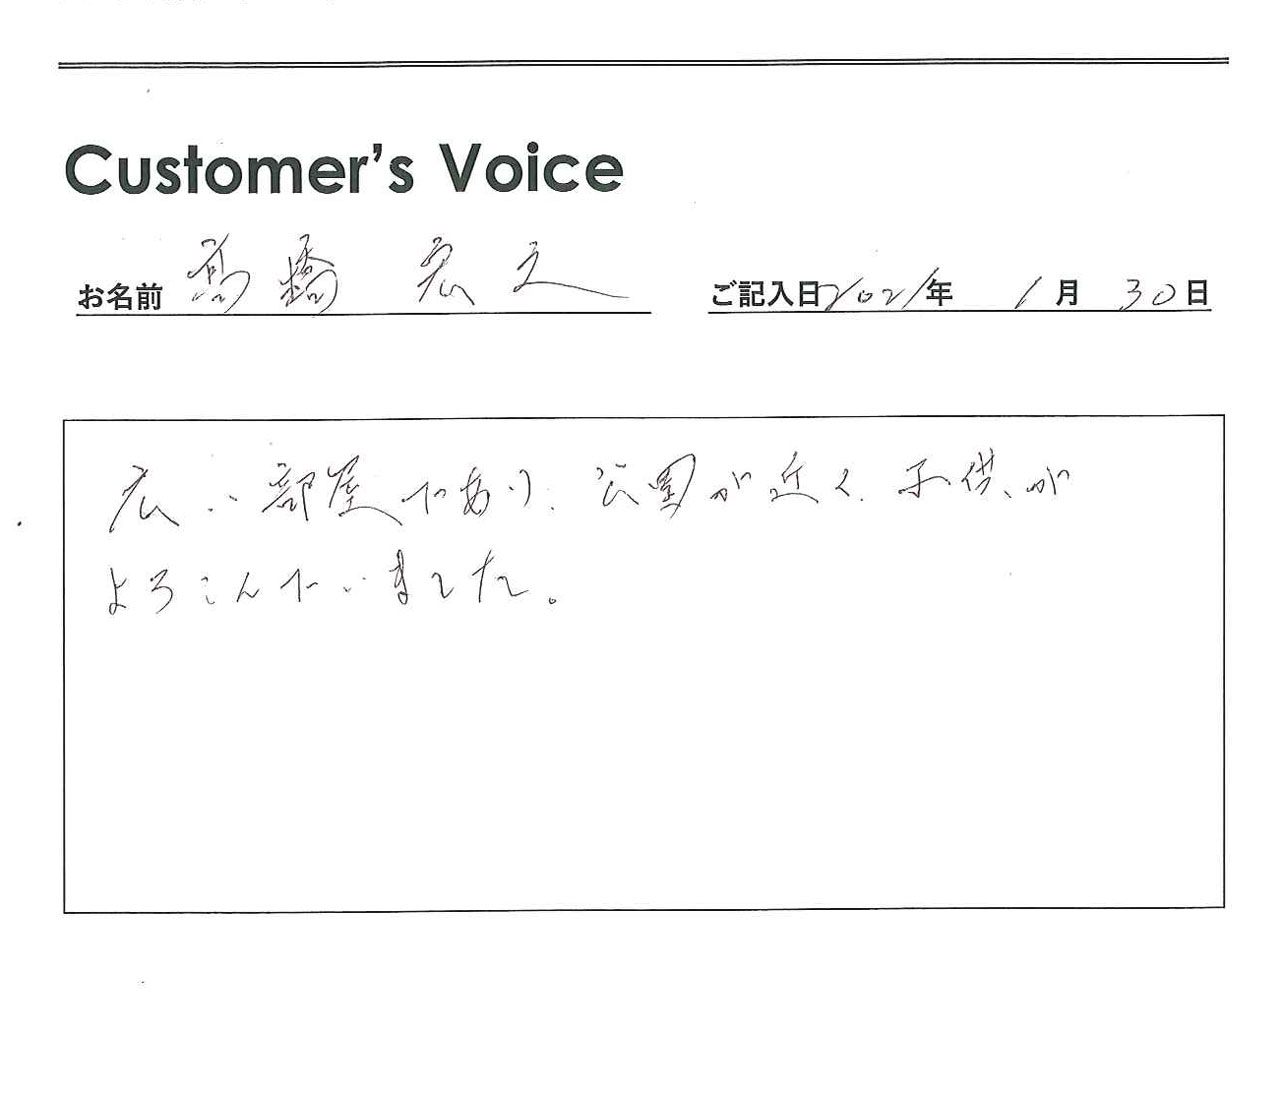 Customer's Voice
お名前 髙橋 宏之 ご記入日 2021年 1月 30日
広い部屋であり、公園が近く、子供が
よろこんでいました。